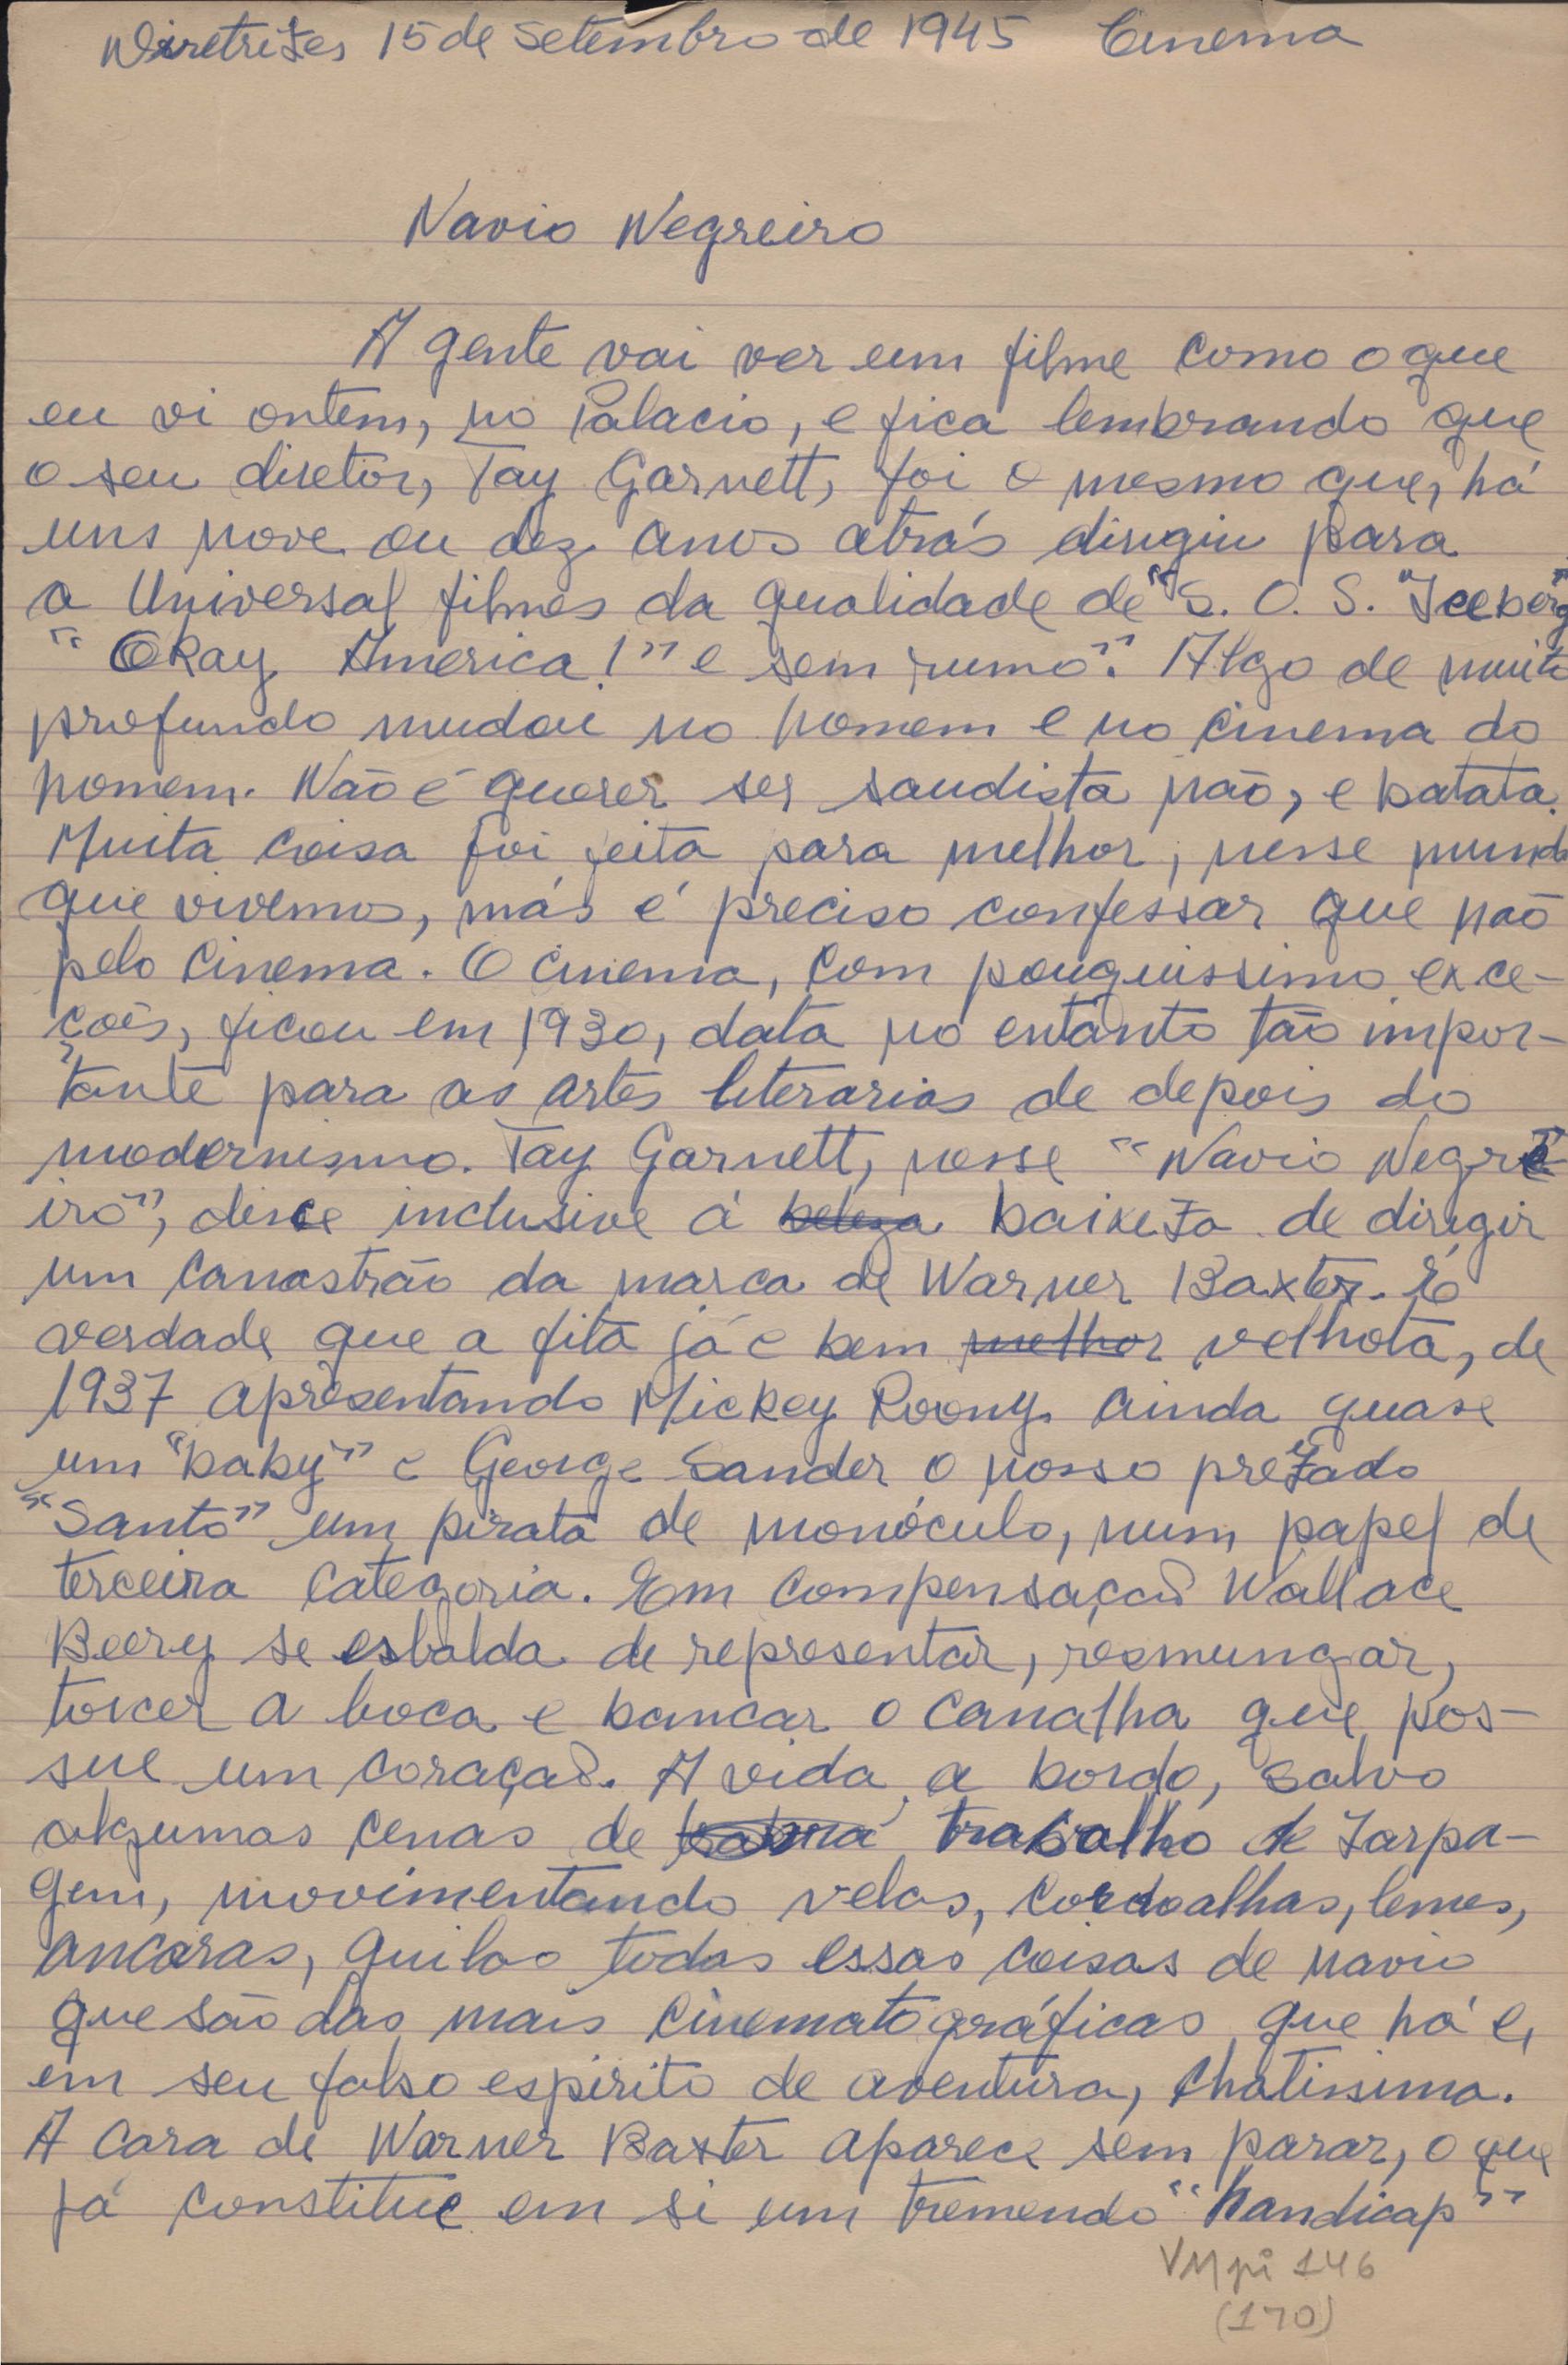 Diretrizes 15 de Setembro de 1945 Cinema
Navio Negreiro
A gente vai ver um filme como o que
eu vi ontem, no Palacio, e fica lembrando que
o seu diretor, Tay Garnett, foi o mesmo que, há
uns nove ou dez anos atrás dirigiu para
a Universal filmes da qualidade de "S. O. S. "Iceberg"
"Okay America!" e sem rumo". Algo de muito
profundo mudou no homem e no cinema do
homem. Não é querer ser saudista não, e batata.
Muita coisa foi feita para melhor, nesse mundo
que vivemos, más é preciso confessar que não
pelo cinema. O cinema, com pouquissimo exce-
çoẽs, ficou em 1930, data no entanto tão impor-
tante para as artes literarias de depois do
modernismo. Tay Garnett, nesse "Navio Negre-
iro", desce inclusive á beleza baixeza de dirigir
um canastrão da marca de Warner Baxter. É
verdade que a fita já é bem melhor velhota, de
1937 apresentando MickeyRoony. ainda quase
um "baby" e George Sander o nosso prezado
"Santo" um pirata de monóculo, num papel de
terceira categoria. Em compensação Wallace
Beery se esbalda de representar, resmungar,
torcer a boca e bancar o canalha que pos-
sue um coração. A vida a bordo, salvo
algumas cenas de trabalho de zarpa-
gem, movimentando velas, cordoalhas, lemes,
ancoras, quilas todas essas coisas de navio
que são das mais cinematográficas que há e,
em seu falso espirito de aventura, chatissima.
A cara de Warner Baxter aparece sem parar, o que
já constitue em si um tremendo "handicap"
VMpi 146
(170)